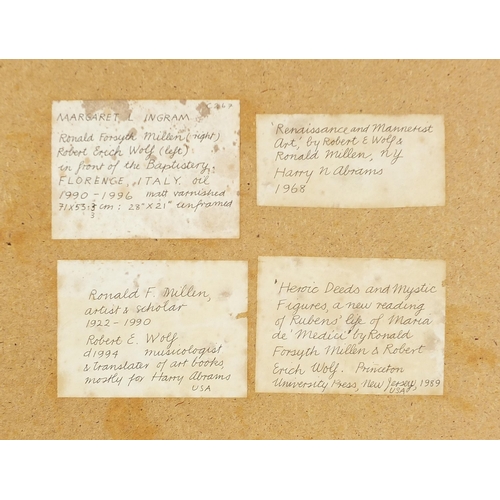 MARGARET L INGRAM
Ronald Forsyth Millen (right)
Robert Erich Wolf (left):
in front of the Baptistery,
FLORENCE, ITALY. oil
1990-1996 matt varnished
71x53.3 cm: 28"x21" unframed
3
Renaissance and Mannerist
Art, by Robert E Wolf &
Ronald Millen, N.Y.
Harry N Abrams
1968
Ronald F. Millen,
artist & scholar
1922-1990
Robert E. Wolf
d1994 musicologist
& translater of art books,
mostly for Harry Abrams
USA
'Heroic Deeds and Mystic
Figures, a new reading
of Rubens' life of Maria
de' Medici' by Ronald
Forsyth Millen & Robert
Erich Wolf. Princeton
University Press, New Jersey, 1989
USA